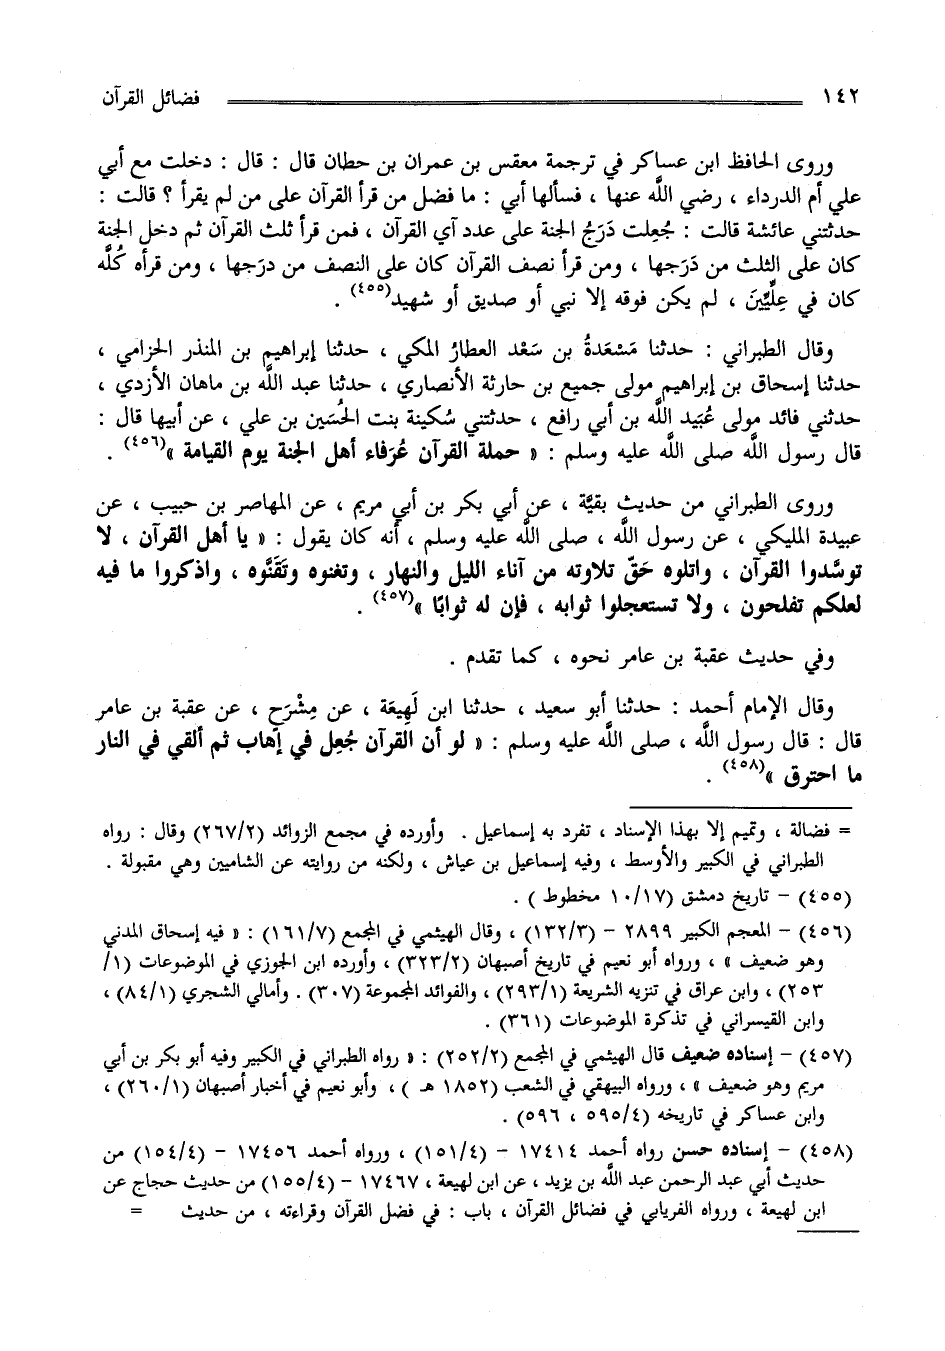 ١٤٢ فضائل القرآن
وروى الحافظ ابن عساكر في ترجمة معقس بن عمران بن حطان قال : قال : دخلت مع أبي
علي أم الدرداء ، رضي اللَّه عنها ، فسألها أبي : ما فضل من قرأ القرآن على من لم يقرأ ؟ قالت :
حدثتني عائشة قالت : جُعِلت دَرَجُ الجنة على عدد آي القرآن ، فمن قرأ ثلث القرآن ثم دخل الجنة
كان على الثلث من دَرَجها ، ومن قرأ نصف القرآن كان على النصف من درَجها ، ومن قرأه كُلَّه
كان في عِلِّيِّينَ ، لم يكن فوقه إلا نبي أو صديق أو شهيد(٤٥٥) .
وقال الطبراني : حدثنا مَسْعَدةُ بن سَعْد العطارُ المكي ، حدثنا إبراهيم بن المنذر الحزامي ،
حدثنا إسحاق بن إبراهيم مولى جميع بن حارثة الأنصاري ، حدثنا عبد اللَّه بن ماهان الأزدي ،
حدثني فائد مولى عُبَيد اللَّه بن أبي رافع ، حدثتني سُكينة بنت الحُسَين بن علي ، عن أبيها قال :
قال رسول اللَّه صلى اللَّه عليه وسلم : « حملة القرآن عُرَفاء أهل الجنة يوم القيامة »(٤٥٦) .
وروى الطبراني من حديث بقيَّة ، عن أبي بكر بن أبي مريم ، عن المهاصر بن حبيب ، عن
عبيدة المليكي ، عن رسول اللَّه ، صلى اللَّه عليه وسلم ، أنه كان يقول : « يا أهل القرآن ، لا
توسَّدوا القرآن ، واتلوه حَقّ تلاوته من آناء الليل والنهار ، وتغنوه وتَقَنَّوه ، واذكروا ما فيه
لعلكم تفلحون ، ولا تستعجلوا ثوابه ، فإن له ثوابًا »(٤٥٧) .
وفي حديث عقبة بن عامر نحوه ، كما تقدم .
وقال الإمام أحمد : حدثنا أبو سعيد ، حدثنا ابن لَهِيعَة ، عن مِشْرَح ، عن عقبة بن عامر
قال : قال رسول اللَّه ، صلى اللَّه عليه وسلم : « لو أن القرآن جُعِل في إهاب ثم ألقي في النار
ما احترق »(٤٥٨) .
= فضالة ، وتميم إلا بهذا الإسناد ، تفرد به إسماعيل . وأورده في مجمع الزوائد (٢٦٧/٢) وقال : رواه
الطبراني في الكبير والأوسط ، وفيه إسماعيل بن عياش ، ولكنه من روايته عن الشاميين وهي مقبولة .
(٤٥٥) - تاريخ دمشق (١٠/١٧ مخطوط ) .
(٤٥٦) - المعجم الكبير ٢٨٩٩ - (١٣٢/٣) ، وقال الهيثمي في المجمع (١٦١/٧) : « فيه إسحاق المدني
وهو ضعيف » ، ورواه أبو نعيم في تاريخ أصبهان (٣٢٣/٢) ، وأورده ابن الجوزي في الموضوعات (١/
٢٥٣) ، وابن عراق في تنزيه الشريعة (٢٩٣/١) ، والفوائد المجموعة (٣٠٧) . وأمالي الشجري (٨٤/١) ،
وابن القيسراني في تذكرة الموضوعات (٣٦١) .
(٤٥٧) - إسناده ضعيف قال الهيثمي في المجمع (٢٥٢/٢) : « رواه الطبراني في الكبير وفيه أبو بكر بن أبي
مريم وهو ضعيف » ، ورواه البيهقي في الشعب (١٨٥٢ هـ ) ، وأبو نعيم في أخبار أصبهان (٢٦٠/١) ،
وابن عساكر في تاريخه (٥٩٥/٤ ، ٥٩٦) .
(٤٥٨) - إسناده حسن رواه أحمد ١٧٤١٤ - (١٥١/٤) ، ورواه أحمد ١٧٤٥٦ - (١٥٤/٤) من
حديث أبي عبد الرحمن عبد اللَّه بن يزيد ، عن ابن لهيعة ، ١٧٤٦٧ - (١٥٥/٤) من حديث حجاج عن
ابن لهيعة ، ورواه الفريابي في فضائل القرآن ، باب : في فضل القرآن وقراءته ، من حديث =